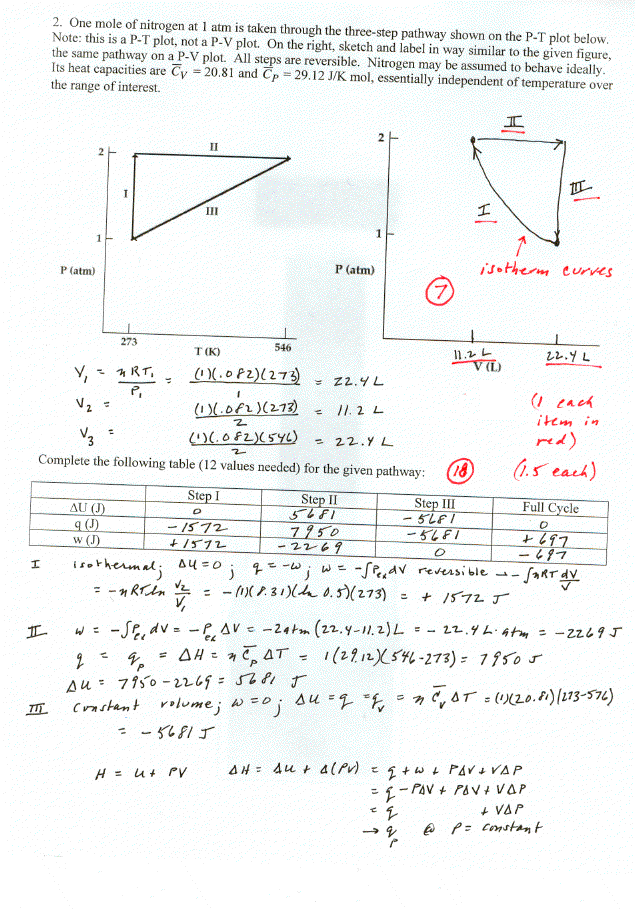 2. One mole of nitrogen at 1 atm is taken through the three-step pathway shown on the P-T plot below.
Note: this is a P-T plot, not a P-V plot. On the right, sketch and label in way similar to the given figure,
the same pathway on a P-V plot. All steps are reversible. Nitrogen may be assumed to behave ideally.
Its heat capacities are C̅V = 20.81 and C̅P = 29.12 J/K mol, essentially independent of temperature over
the range of interest.
2
II
I
III
1
P (atm)
273
T (K)
546
2
II
III
I
1
P (atm)
isotherm curves
7
11.2 L
22.4 L
V (L)
V₁ = nRT₁/P₁ = (1)(.082)(273)/1 = 22.4 L
V₂ = (1)(.082)(273)/2 = 11.2 L
V₃ = (1)(.082)(546)/2 = 22.4 L
(1 each
item in
red)
Complete the following table (12 values needed) for the given pathway:
18
(1.5 each)
Step I Step II Step III Full Cycle
ΔU (J) 0 5681 -5681 0
q (J) -1572 7950 -5681 +697
w (J) +1572 -2269 0 -697
I isothermal; ΔU = 0; q = -w; w = -∫Pex dV reversible → -∫nRT dV/V
= -nRT ln V₂/V₁ = -(1)(8.31)(ln 0.5)(273) = + 1572 J
II w = -∫Pex dV = -Pex ΔV = -2atm (22.4-11.2)L = -22.4 L·atm = -2269 J
q = qp = ΔH = n C̅p ΔT = 1(29.12)(546-273) = 7950 J
ΔU = 7950 - 2269 = 5681 J
III Constant volume; w = 0; ΔU = q = qv = n C̅v ΔT = (1)(20.81)(273-576)
= -5681 J
H = U + PV ΔH = ΔU + Δ(PV) = q + w + PΔV + VΔP
= q - PΔV + PΔV + VΔP
= q + VΔP
→ qp @ P = constant